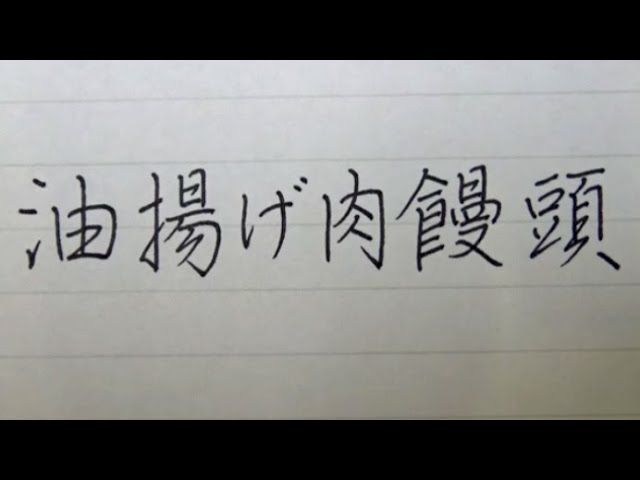 油揚げ肉饅頭